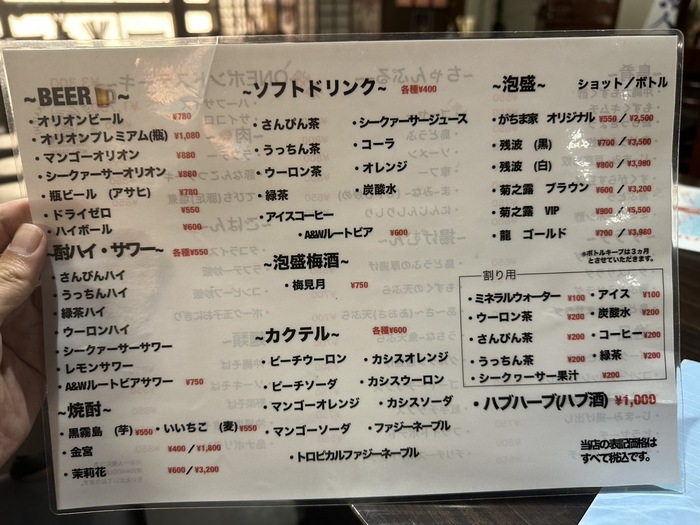 ~BEER~
・オリオンビール ¥780
・オリオンプレミアム(瓶) ¥1,080
・マンゴーオリオン ¥880
・シークァーサーオリオン ¥880
・瓶ビール (アサヒ) ¥780
・ドライゼロ ¥550
・ハイボール ¥600
~酎ハイ・サワー~ 各種¥550
・さんぴんハイ
・うっちんハイ
・緑茶ハイ
・ウーロンハイ
・シークァーサーサワー
・レモンサワー
・A&Wルートビアサワー ¥750
~焼酎~
・黒霧島 (芋) ¥550 ・いいちこ (麦) ¥550
・金宮 ¥400/¥1,800
・茉莉花 ¥600/¥3,200
~ソフトドリンク~ 各種¥400
・さんぴん茶 ・シークァーサージュース
・うっちん茶 ・コーラ
・ウーロン茶 ・オレンジ
・緑茶 ・炭酸水
・アイスコーヒー
・A&Wルートビア ¥600
~泡盛梅酒~
・梅見月 ¥750
~カクテル~ 各種¥600
・ピーチウーロン ・カシスオレンジ
・ピーチソーダ ・カシスウーロン
・マンゴーオレンジ ・カシスソーダ
・マンゴーソーダ ・ファジーネーブル
・トロピカルファジーネーブル
~泡盛~ ショット/ボトル
・がちま家 オリジナル ¥550/¥2,500
・残波 (黒) ¥700/¥3,500
・残波 (白) ¥800/¥3,980
・菊之露 ブラウン ¥600/¥3,200
・菊之露 VIP ¥900/¥5,500
・龍 ゴールド ¥790/¥3,980
※ボトルキープは3ヵ月
とさせていただきます。
割り用
・ミネラルウォーター ¥100 ・アイス ¥100
・ウーロン茶 ¥200 ・炭酸水 ¥200
・さんぴん茶 ¥200 ・コーヒー ¥200
・うっちん茶 ¥200 ・緑茶 ¥200
・シークヮーサー果汁 ¥200
・ハブハーブ(ハブ酒) ¥1,000
当店の表記価格は
すべて税込です。